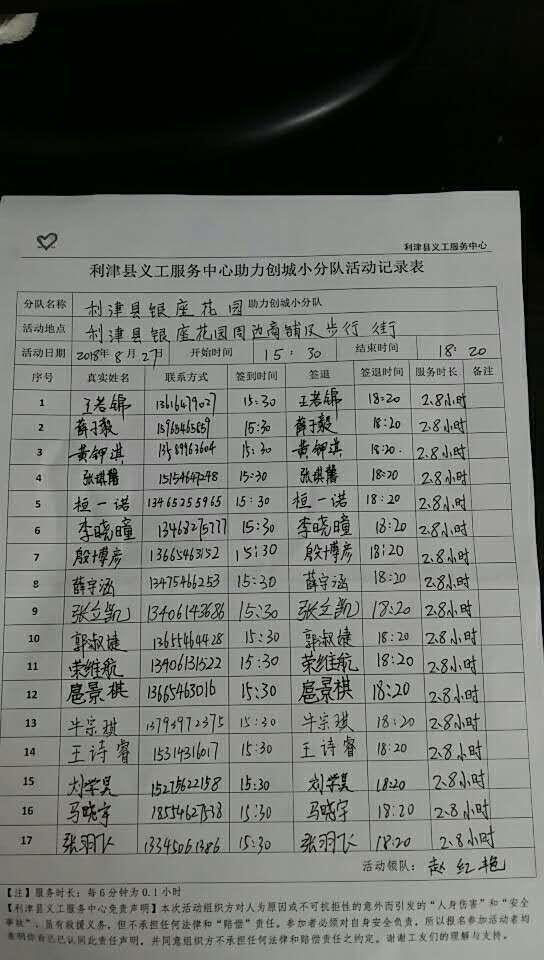 利津县义工服务中心
利津县义工服务中心助力创城小分队活动记录表
分队名称 利津县银座花园助力创城小分队
活动地点 利津县银座花园周边商铺及步行街
活动日期 2018年8月27日 开始时间 15:30 结束时间 18:20
序号 真实姓名 联系方式 签到时间 签退 签退时间 服务时长 备注
1 王若锦 13616479027 15:30 王若锦 18:20 2.8小时
2 薛子毅 15965465659 15:30 薛子毅 18:20 2.8小时
3 黄钾淇 13589963604 15:30 黄钾淇 18:20. 2.8小时
4 张琪馨 15154647248 15:30 张琪馨 18:20 2.8小时
5 桓一诺 13465255965 15:30 桓一诺 18:20 2.8小时
6 李晓瞳 13468275777 15:30 李晓瞳 18:20 2.8小时
7 殷博彦 13665463152 15:30 殷博彦 18:20 2.8小时
8 薛宇涵 13475466253 15:30 薛宇涵 18:20 2.8小时
9 张立凯 13406143686 15:30 张立凯 18:20 2.8小时
10 郭淑婕 13655464428 15:30 郭淑婕 18:20 2.8小时
11 荣维航 13406131522 15:30 荣维航 18:20 2.8小时
12 扈景棋 13665463016 15:30 扈景棋 18:20 2.8小时
13 牛宗琪 13793972375 15:30 牛宗琪 18:20 2.8小时
14 王诗睿 15314316017 15:30 王诗睿 18:20 2.8小时
15 刘学昊 15275622158 15:30 刘学昊 18:20 2.8小时
16 马晓宇 18554627538 15:30 马晓宇 18:20 2.8小时
17 张羽飞 13345061386 15:30 张羽飞 18:20 2.8小时
活动领队: 赵红艳
【注】服务时长:每6分钟为0.1小时
【利津县义工服务中心免责声明】本次活动组织方对人为原因或不可抗拒性的意外而引发的“人身伤害”和“安全
事故”,虽有救援义务,但不承担任何法律和“赔偿”责任。参加者必须对自身安全负责,所以报名参加活动者均
表明你自己已认同此责任声明,并同意组织方不承担任何法律和赔偿责任之约定。谢谢工友们的理解与支持。